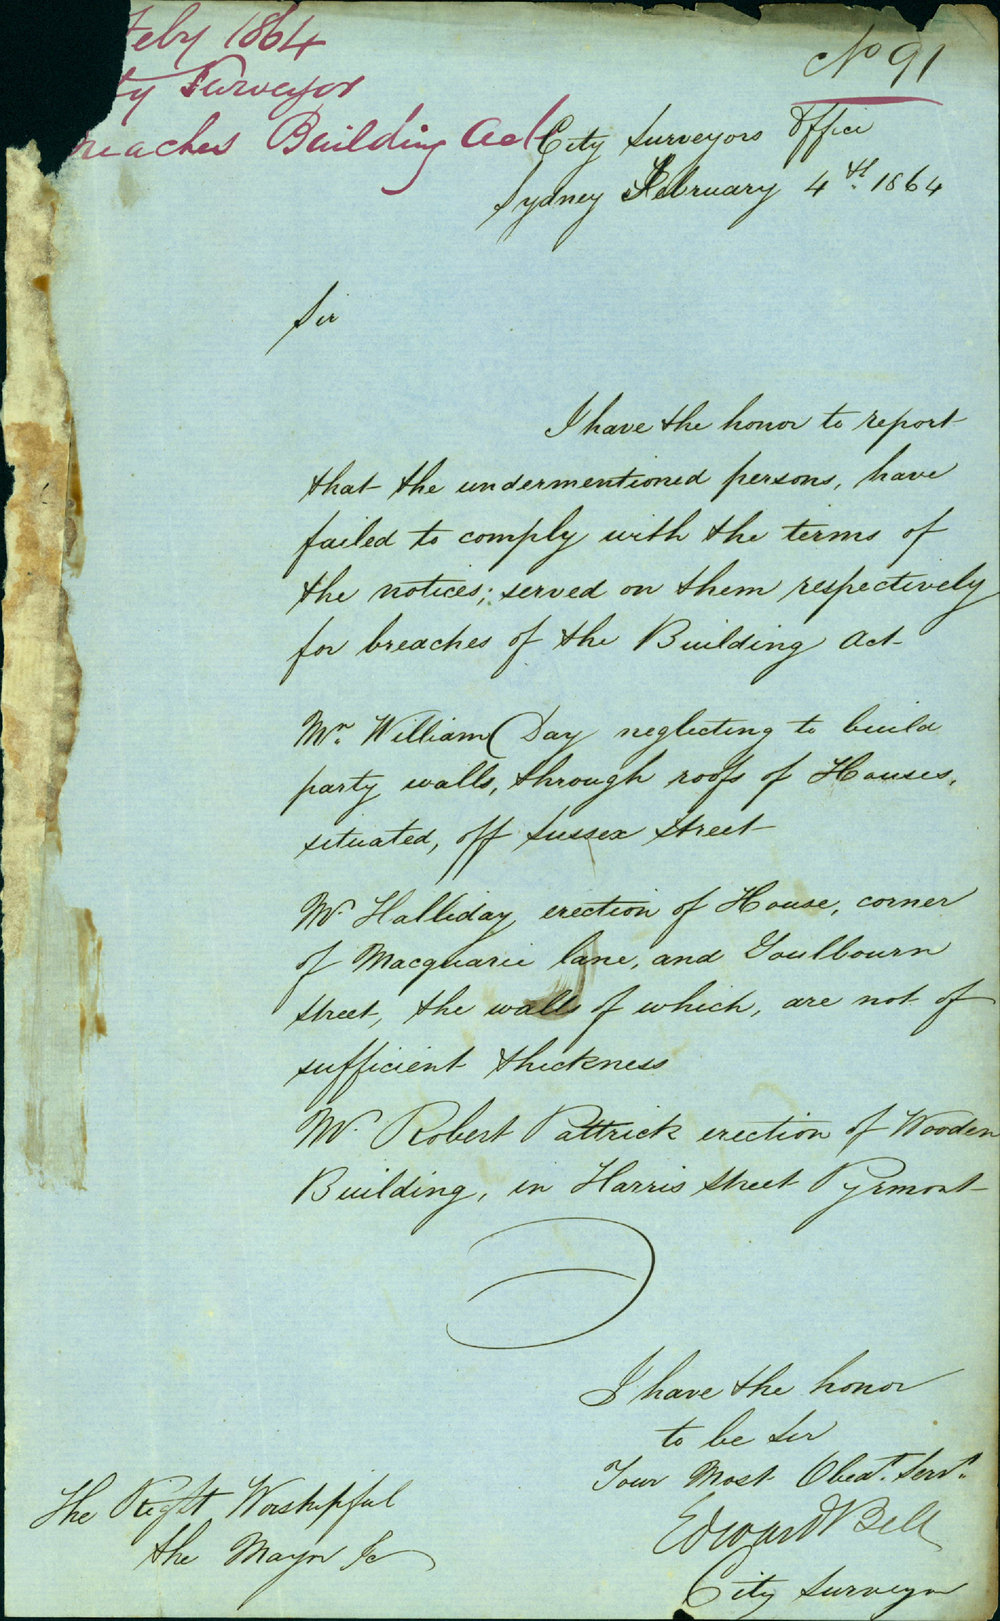 Feby 1864
ty Surveyor
reaches Building Act
No 91
City Surveyors Office
Sydney February 4th. 1864
Sir
I have the honor to report
that the undermentioned persons, have
failed to comply with the terms of
the notices; served on them respectively
for breaches of the Building Act
Mr. William Day neglecting to build
party walls, through roofs of Houses,
situated, off Sussex Street
Mr. Halliday, erection of House, corner
of Macquarie lane, and Goulbourn
Street, the walls of which, are not of
sufficient thickness
Mr. Robert Pattrick erection of Wooden
Building, in Harris Street Pyrmont
I have the honor
to be Sir
Your Most Obedt. Servt.
Edward Bell
City Surveyor
The Right Worshipful
the Mayor &c